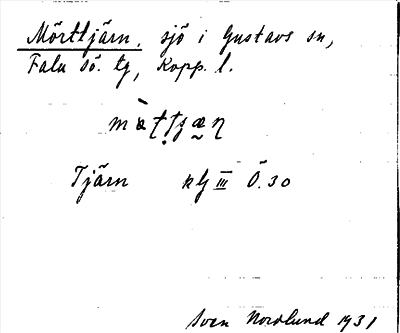 Mörttjärn, sjö i Gustavs sn,
Falu sö. tg, Kopp. l.
Tjärn kb III Ö. 30
Sven Nordlund 1931